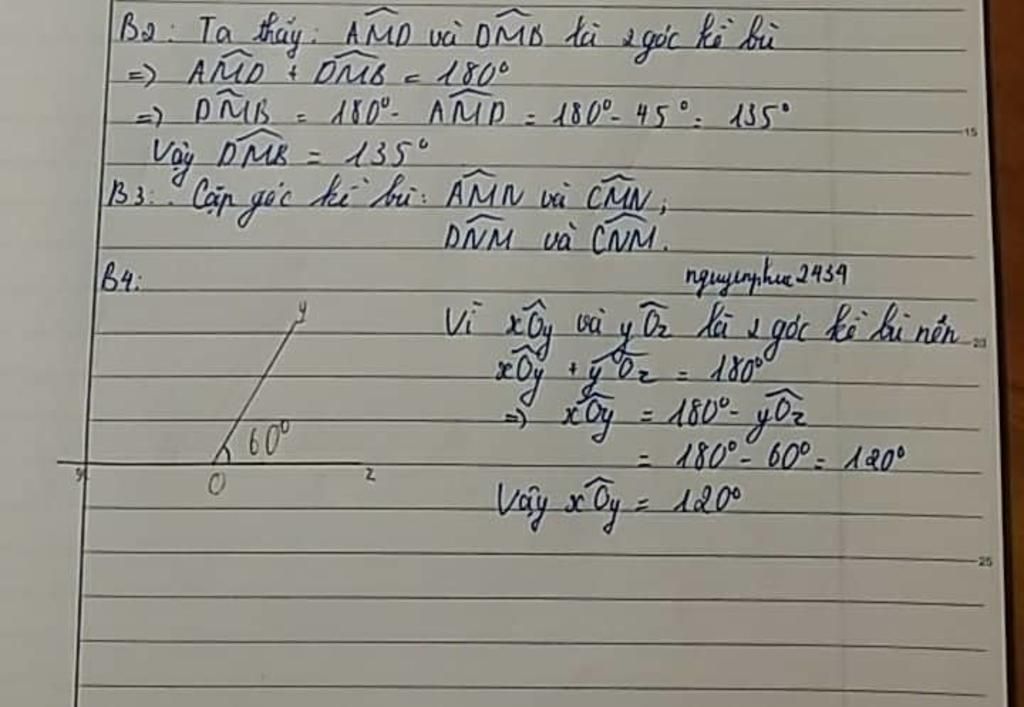 B2: Ta thấy: AM̂D và DM̂B là 2 góc kề bù
=> AM̂D + DM̂B = 180°
=> DM̂B = 180° - AM̂D = 180° - 45° = 135°
15
Vậy DM̂B = 135°
B3: Cặp góc kề bù: AM̂N và CM̂N;
DN̂M và CN̂M.
B4:
nguyenphuc2434
y
Vì xÔy và yÔz là 2 góc kề bù nên
20
xÔy + yÔz = 180°
=> xÔy = 180° - yÔz
60°
= 180° - 60° = 120°
x O z
Vậy xÔy = 120°
25